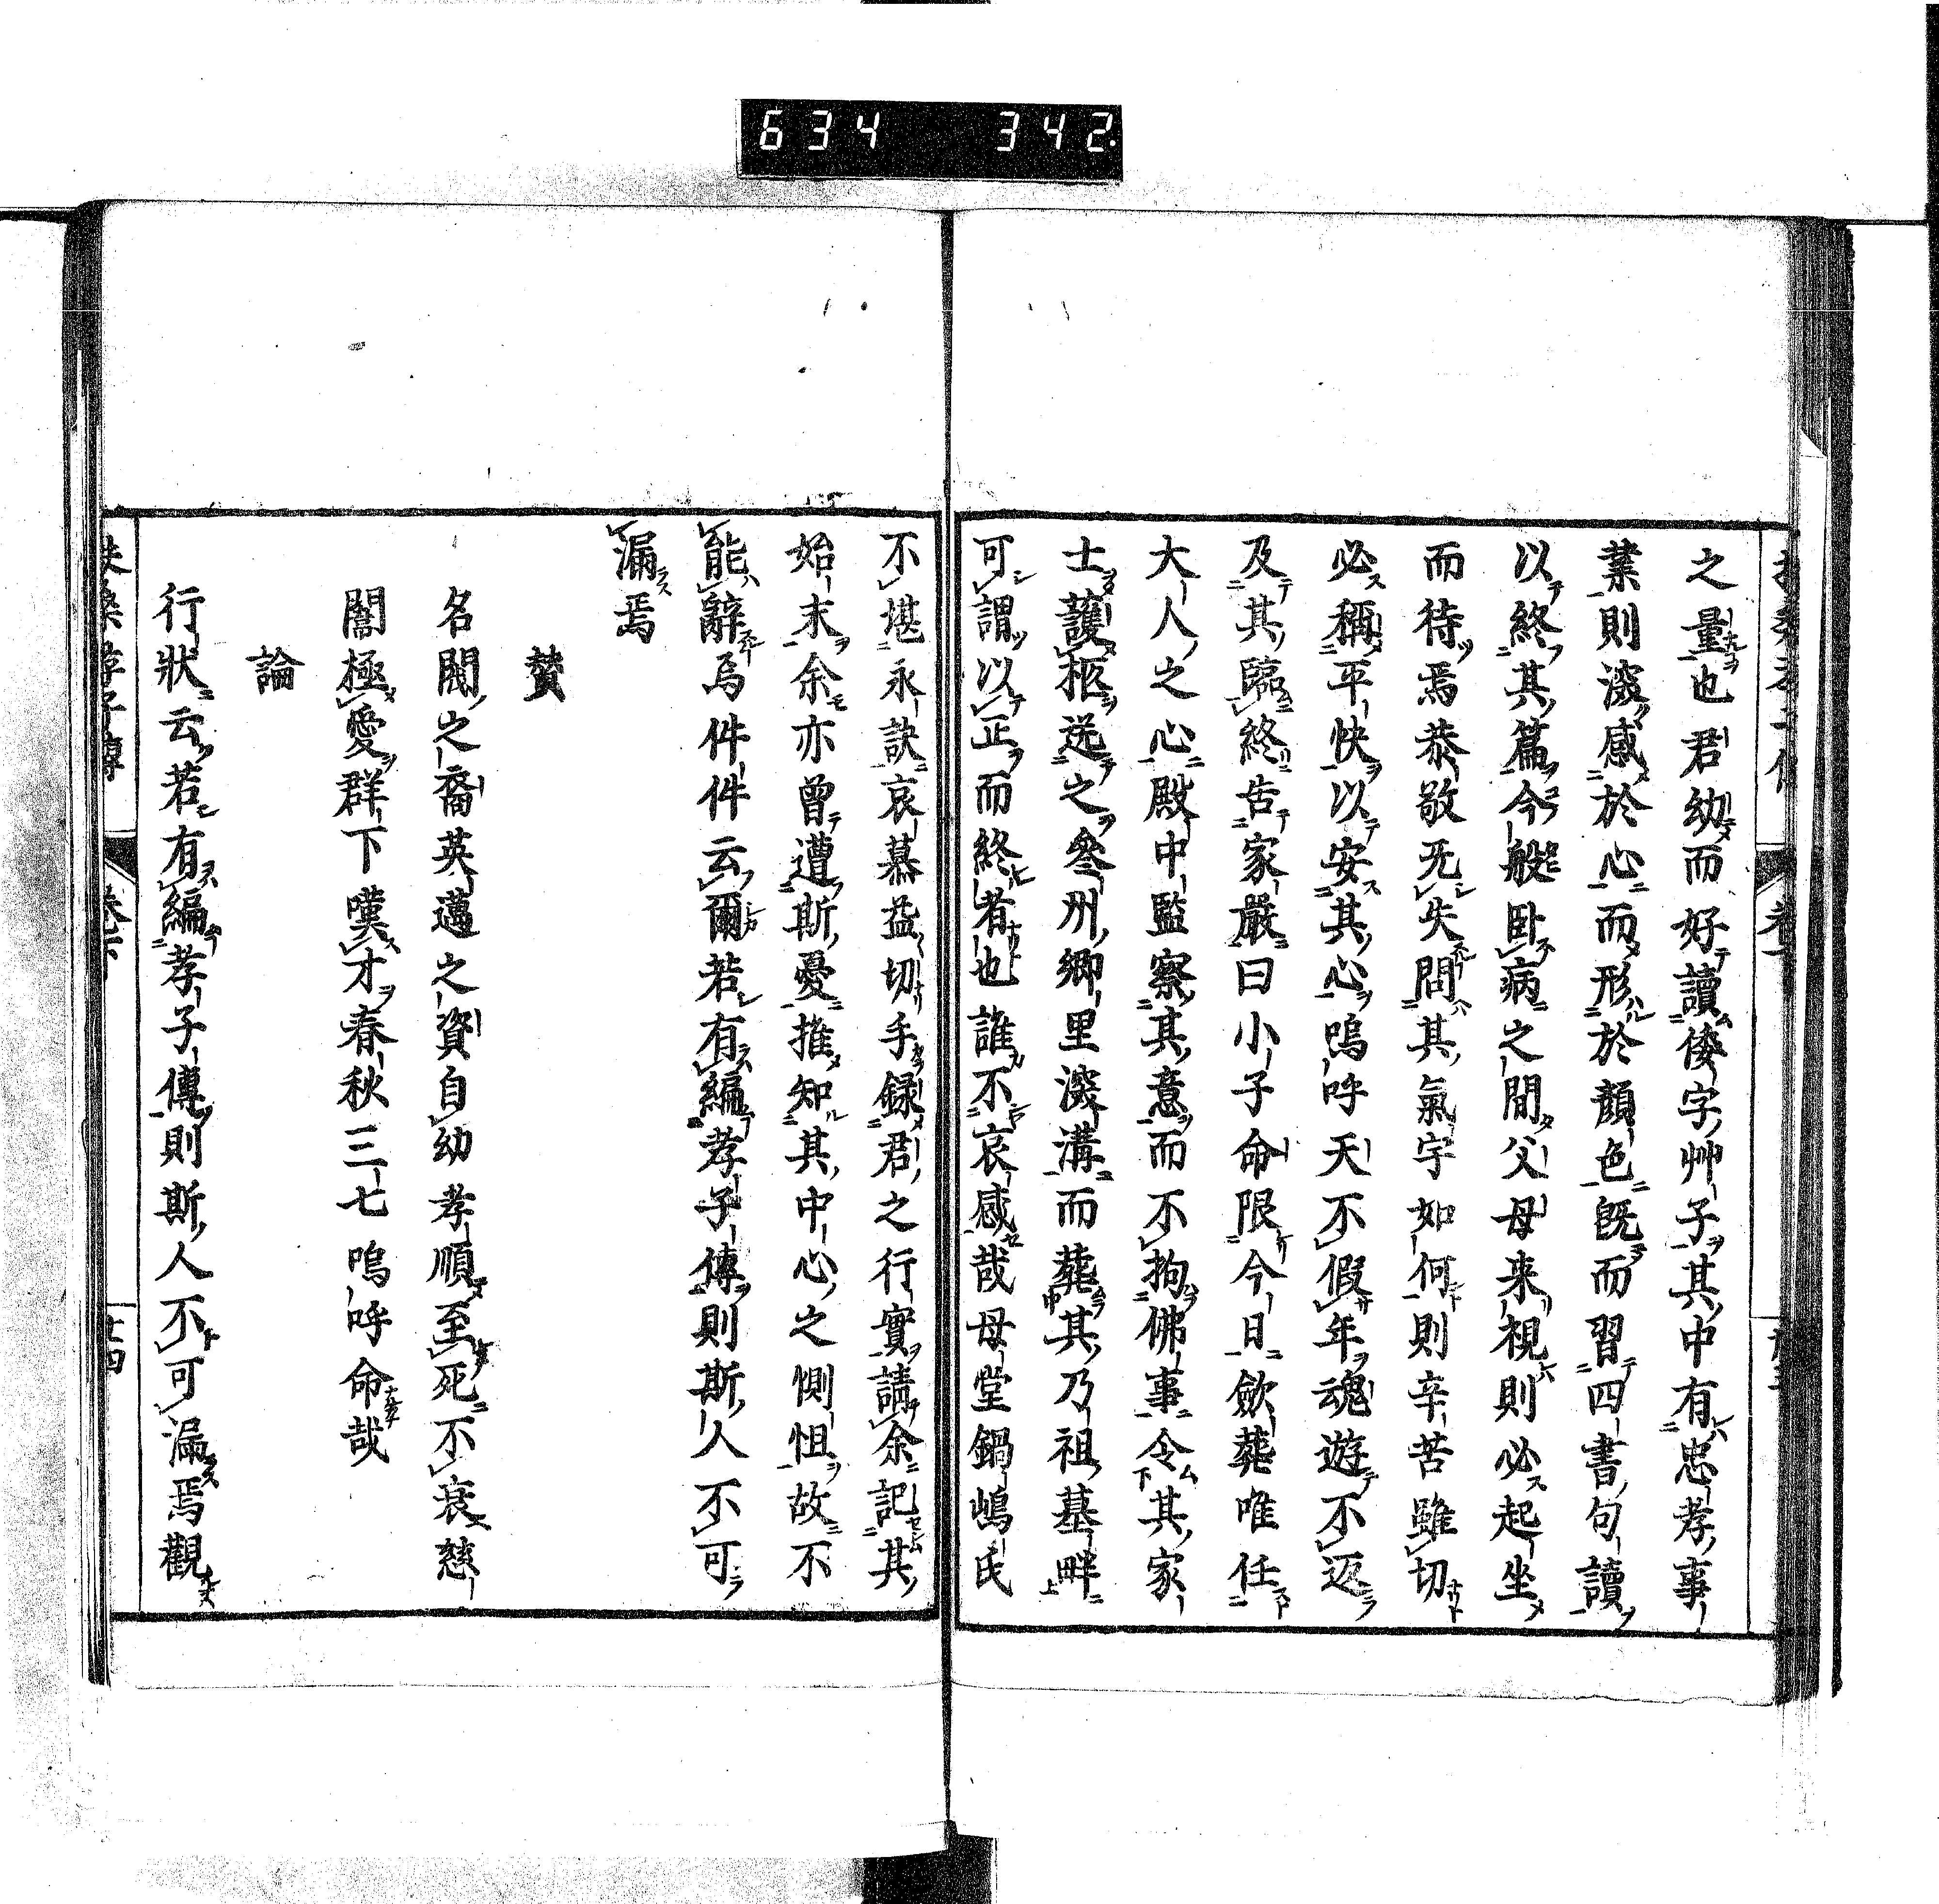 634 342
之量也君幼而好讀倭字艸子其中有忠孝事
業則深感於心而形於顏色既而習四書句讀
以終其篇今般臥病之間父母来視則必起坐
而待焉恭敬旡失問其氣宇如何則辛苦雖切
必稱平快以安其心嗚呼天不假年魂遊不返
及其臨終告家嚴曰小子命限今日歛葬唯任
大人之心殿中監察其意而不拘佛事令其家
士護柩送之叅州鄉里淺溝而葬其乃祖墓畔
可謂以正而終者也誰不哀感哉母堂鍋嶋氏
不堪永訣哀慕益切手録君之行實請余記其
始末余亦曾遭斯憂推知其中心之惻怛故不
能辭為件件云爾若有編孝子傳則斯人不可
漏焉
贊
名閥之裔英邁之資自幼孝順至死不衰慈
闈極愛群下嘆才春秋三七嗚呼命哉
論
行狀云若有編孝子傳則斯人不可漏焉觀